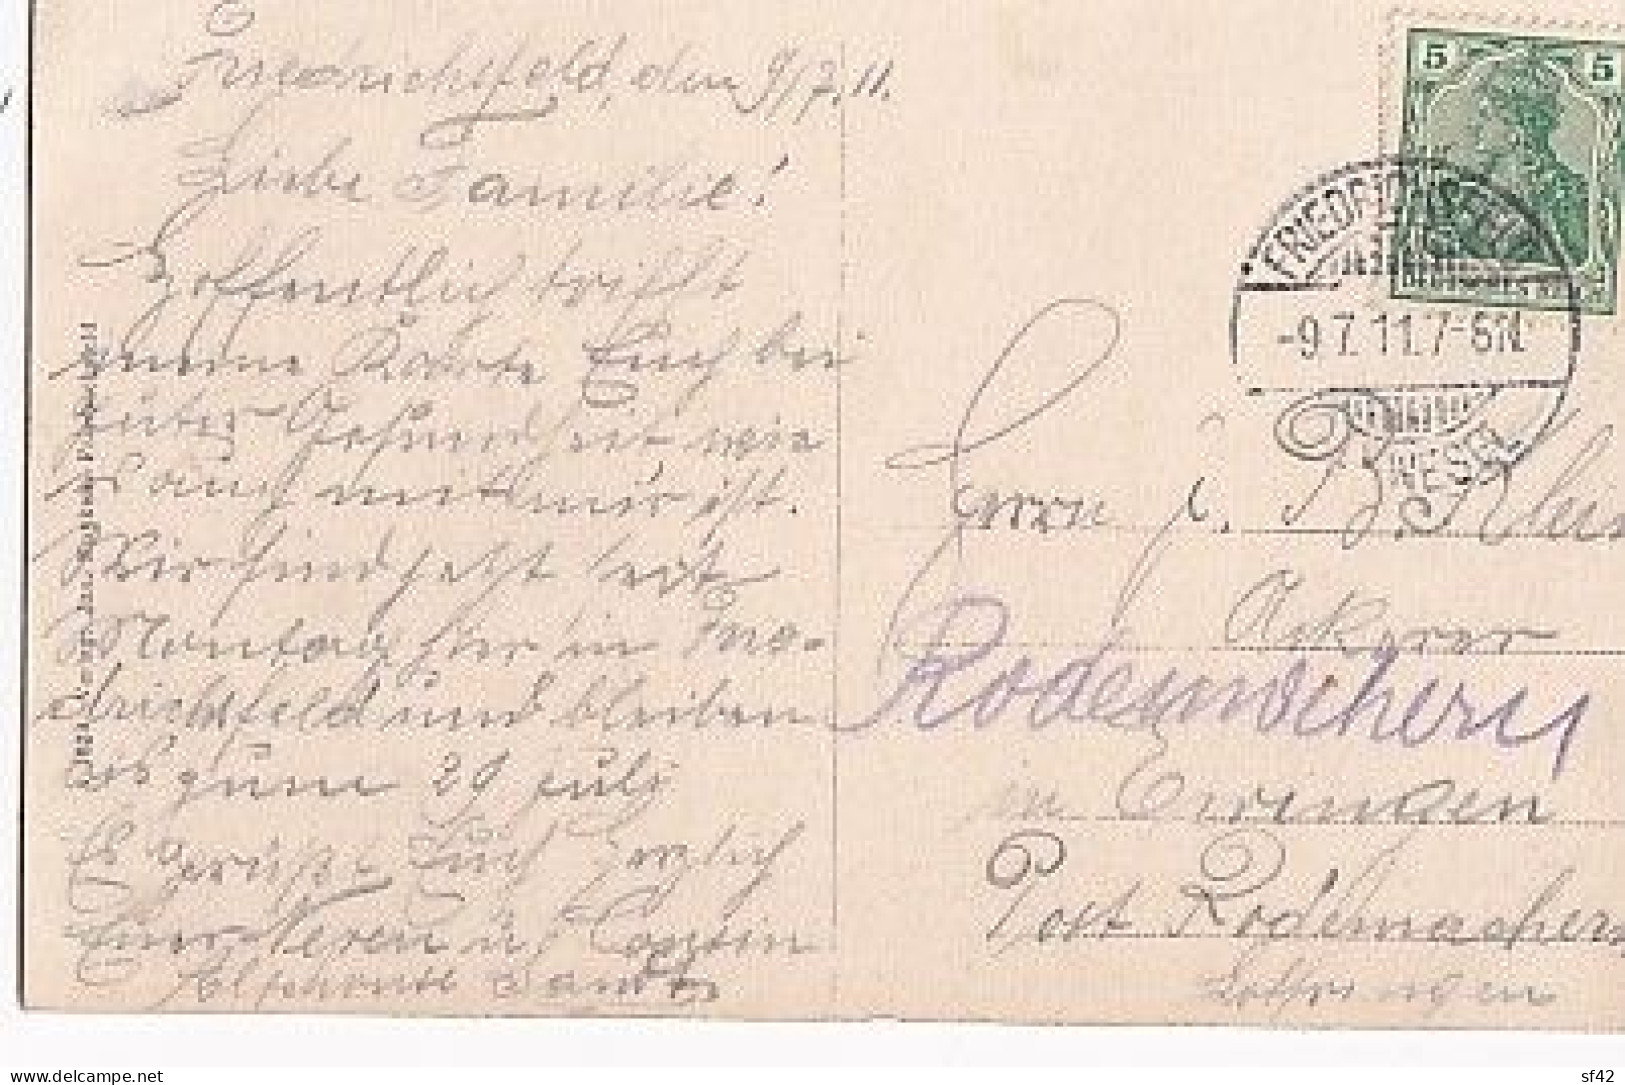 Friedrichsfeld, den 9/7.11.
Liebe Familie!
Hoffentlich trifft
meine Karte Euch bei
guter Gesundheit wie
es auch mit mir ist.
Wir sind jetzt seit
Montag hier in Frie-
drichsfeld und bleiben
bis zum 29 Juli
Es grüßt Euch Herzlich
Euer Neveu u Cousin
Alphonse
5 5
FRIEDRICHSFELD
-9.7.11.7-8N.
WESEL
Herrn
Ackerer
Rodemachern
in Evringen
Post Rodemachern
Lothringen
www.delcampe.net
sf42